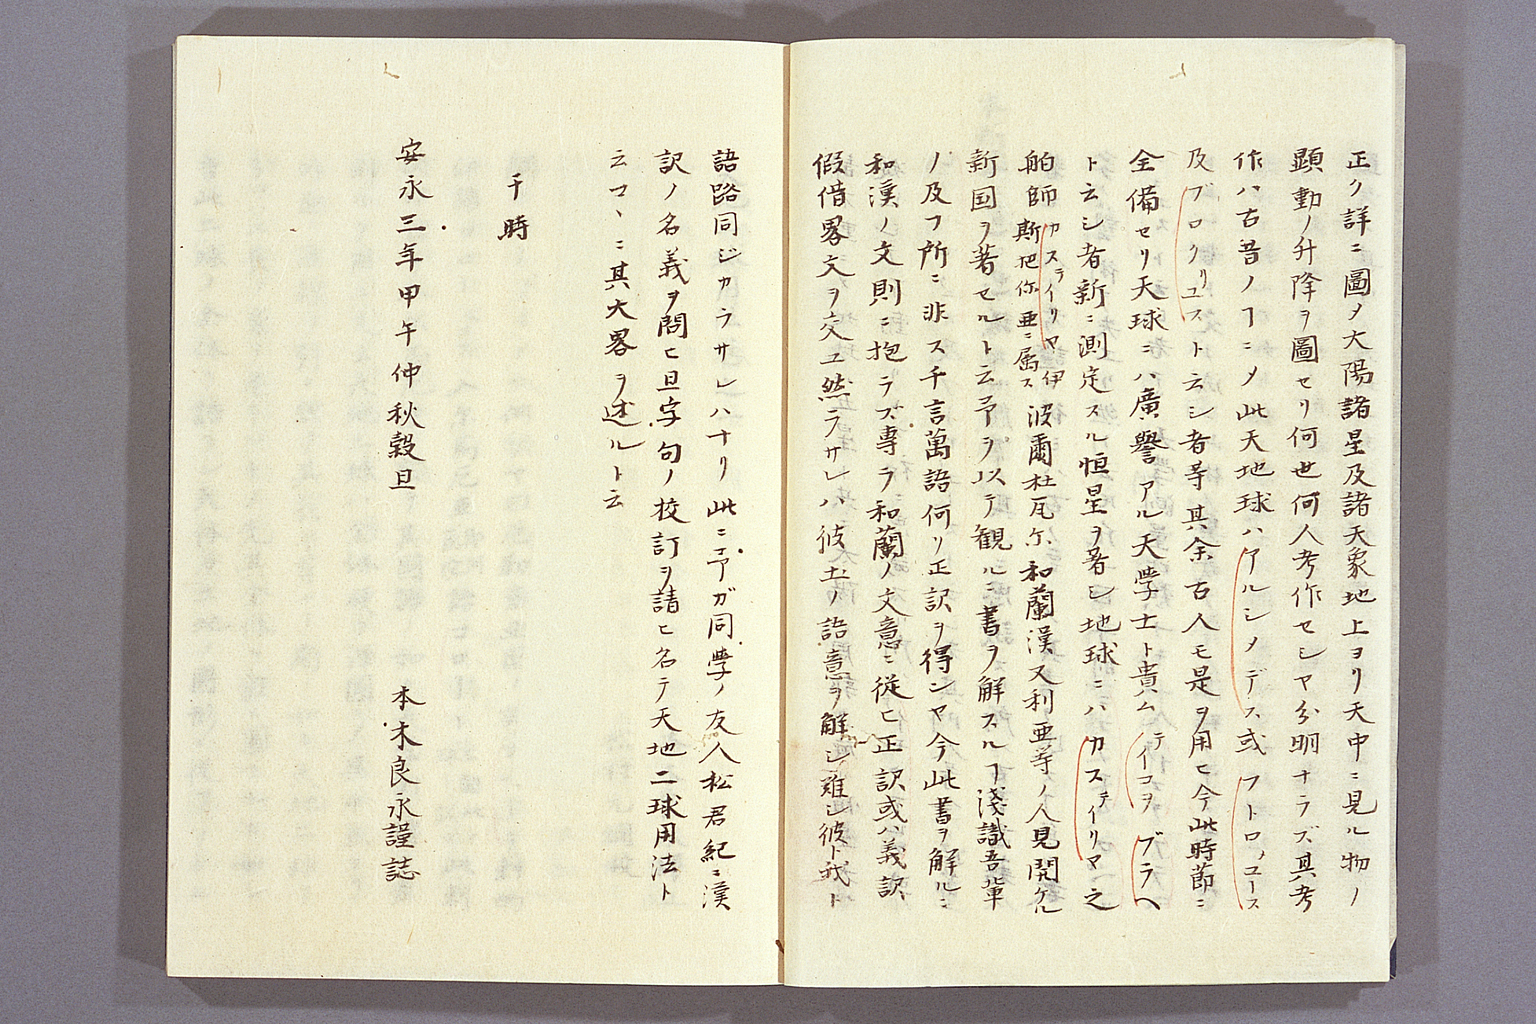 正ク詳ニ圖メ大陽諸星及諸天象地上ヨリ天中ニ見ル物ノ
顕動ノ升降ヲ圖セリ何世何人考作セシヤ分明ナラズ其考
作ハ古昔ノヿニメ此天地球ハアルシメデス或フトロノユース
及プロクリユスト云シ者等其余古人モ是ヲ用ヒ今此時節ニ
全備セリ天球ニハ廣譽アル天学士ト貴ムテイコヲブラヘ
ト云シ者新ニ測定スル恒星ヲ著シ地球ニハカステイリヤ之
舶師カスライリヤ伊斯把你亜ニ属ス波爾杜瓦尓和蘭漢又利亜等ノ人見開ケル
新国ヲ著セルト云予ヲ以テ観ルニ書ヲ解スルヿ淺識吾輩
ノ及フ所ニ非ス千言萬語何リ正訳ヲ得ンヤ今此書ヲ解ルニ
和漢ノ文則ニ抱ラズ専ラ和蘭ノ文意ニ従ヒ正訳或ハ義訳
假借畧文ヲ交ユ然ラサレハ彼土ノ語意ヲ解シ難シ彼ト我ト
語路同ジカラサレハナリ此ニ予ガ同學ノ友人松君紀ニ漢
訳ノ名義ヲ問ヒ且字句ノ校訂ヲ請ヒ名テ天地二球用法ト
云コヽニ其大畧ヲ述ルト云
于時
安永三年甲午仲秋穀旦　本木良永謹誌